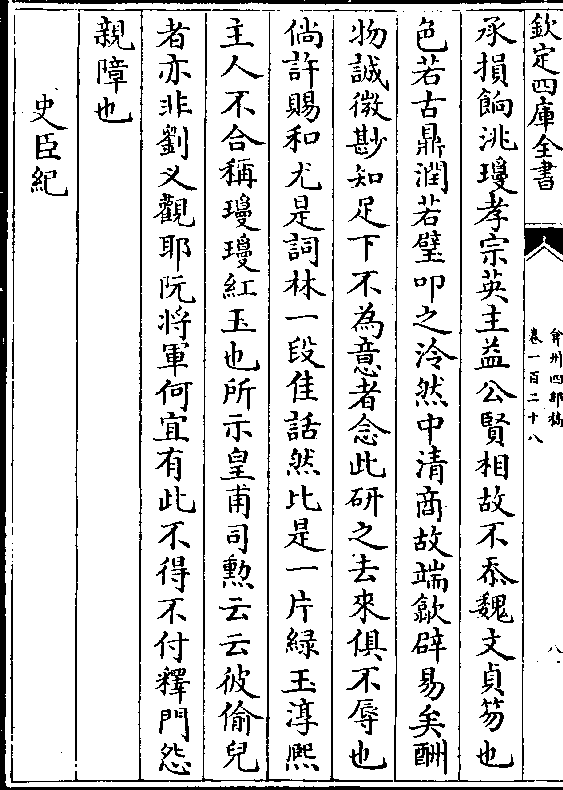 欽定四庫全書
弇州四部稿
卷一百二十八
八
承損餉洮瓊孝宗英主益公賢相故不忝魏文貞笏也
色若古鼎潤若璧叩之泠然中清商故端歙辟易矣酬
物誠微尠知足下不為意者念此研之去來俱不辱也
倘許賜和尤是詞林一段佳話然比是一片綠玉淳熈
主人不合稱瓊瓊紅玉也所示皇甫司勲云云彼偷兒
者亦非劉乂觀耶阮將軍何宜有此不得不付釋門怨
親障也
史臣紀